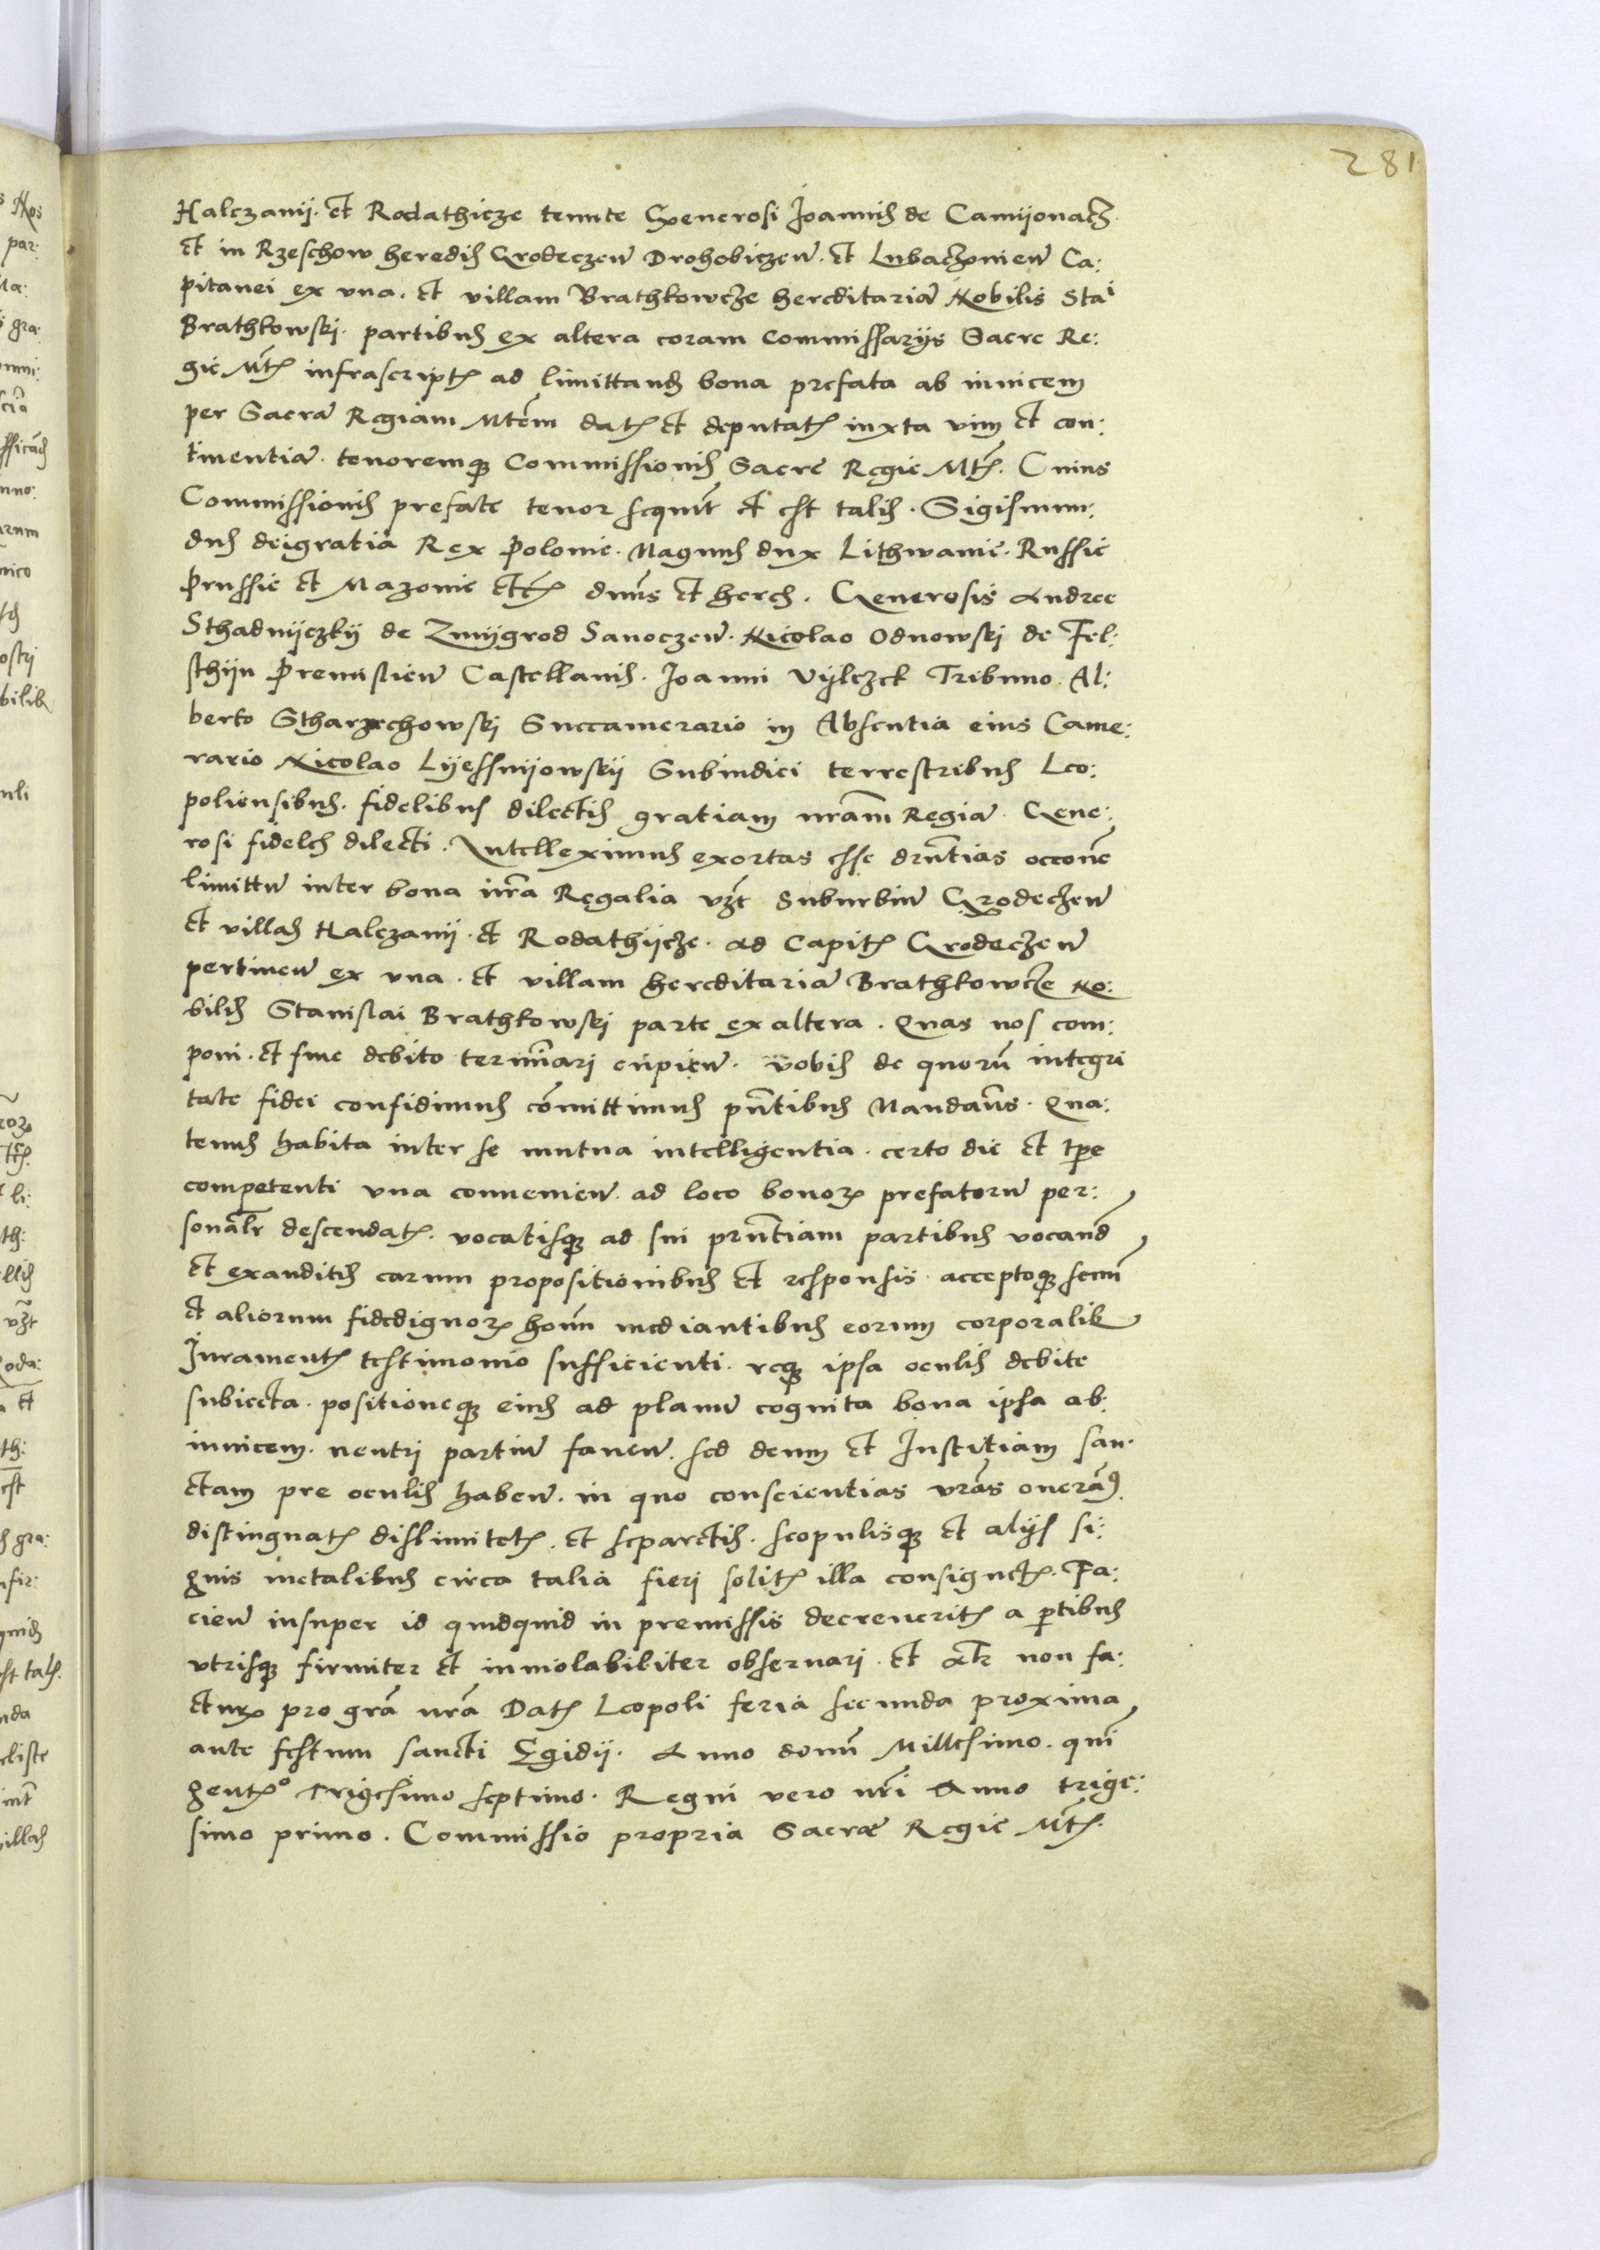 281
Halczanij. et Rodathicze tenute Generosi Joannis de Camijonacz
et in Rzeschow heredis Grodeczen̄ Drohobiczen̄. et Lubaczowien̄ Ca:
pitanei ex vna. et villam Brathkowcze hereditariā Nobilis Stai
Brathkowskj. partibus ex altera coram Commissarijs Sacre Re:
gie Mtis infrascriptis ad limittandas bona prefata ab inuicem
per Sacrā Regiam Mtēm datis et deputatis iuxta vim et con:
tinentiā. tenoremq; Commissionis Sacre Regie Mtis. Cuius
Commissionis prefate tenor sequit̄ et est talis. Sigismun:
dus deigratia Rex Polonie. Magnus dux Lithwanie. Russie
Prussie et Mazouie etc̄ dn̄s et heres. Generosis Andree
Sthadnijczkij de Zmijgrod Sanoczen̄. Nicolao Odnowskj de Fel:
schijn Premislien̄ Castellanis. Joanni Vijlczek Tribuno. Al:
berto Stharzechowskj Succamerario in Absentia eius Came:
rario Nicolao Lijessnijowskij Subiudici terrestribus Leo:
poliensibus. fidelibus dilectis gratiam nr̄am Regiā. Gene:
rosi fideles dilecti. Intelleximus exortas esse dr̄ntias occōne
limittū inter bona nr̄a Regalia vzt̄ Suburbiū Grodeczen̄
et villas Halczanij. et Rodathijcze. ad Capitis Grodeczen̄
pertinen̄ ex vna. et villam hereditariā Brathkowcze No:
bilis Stanislai Brathkowskj parte ex altera. Quas nos com:
poni. et fine debito terminari cupien̄. vobis de quorū integri
tate fidei confidimus cōmittimus pn̄tibus Mandan̄s. Qua:
tenus habita inter se mutua intelligentia. certo die et tp̄e
competenti vna conuenien̄. ad loco bonorꝝ prefatorū per:
sonalr̄ descendatis. vocatisq; ad sui prn̄tiam partibus vocand̄
et exauditis earum propositionibus et responsis. acceptoq; senīū
et aliorum fidedignorꝝ homī mediantibus eorum corporalibꝫ
Juramentis testimonio sufficienti. req; ipsa oculis debite
subiecta. positioneq; eius ad planū cognita bona ipsa ab
inuicem. neutri partiū fauen̄. sed deum et Justitiam san:
ctam pre oculis haben̄. in quo conscientias vrās onerām⁹
distinguatis dislimitetis. et separetis. scopulisq; et alijs si:
gnis metalibus circa talia fieri solitis illa consignetis. Fa:
cien̄ insuper id quidquid in premissis decreueritis a ꝑtibus
vtrisq; firmiter et inuiolabiliter obseruari. et alr̄ non fa:
cturꝝ pro grā nrā Datis Leopoli feria secunda proxima
ante festum sancti Egidij. Anno domī Millesimo. quin
gentis⁰ Trigesimo septimo. Regni vero nr̄i Anno trige:
simo primo. Commissio propria Sacrae Regie Mtis.